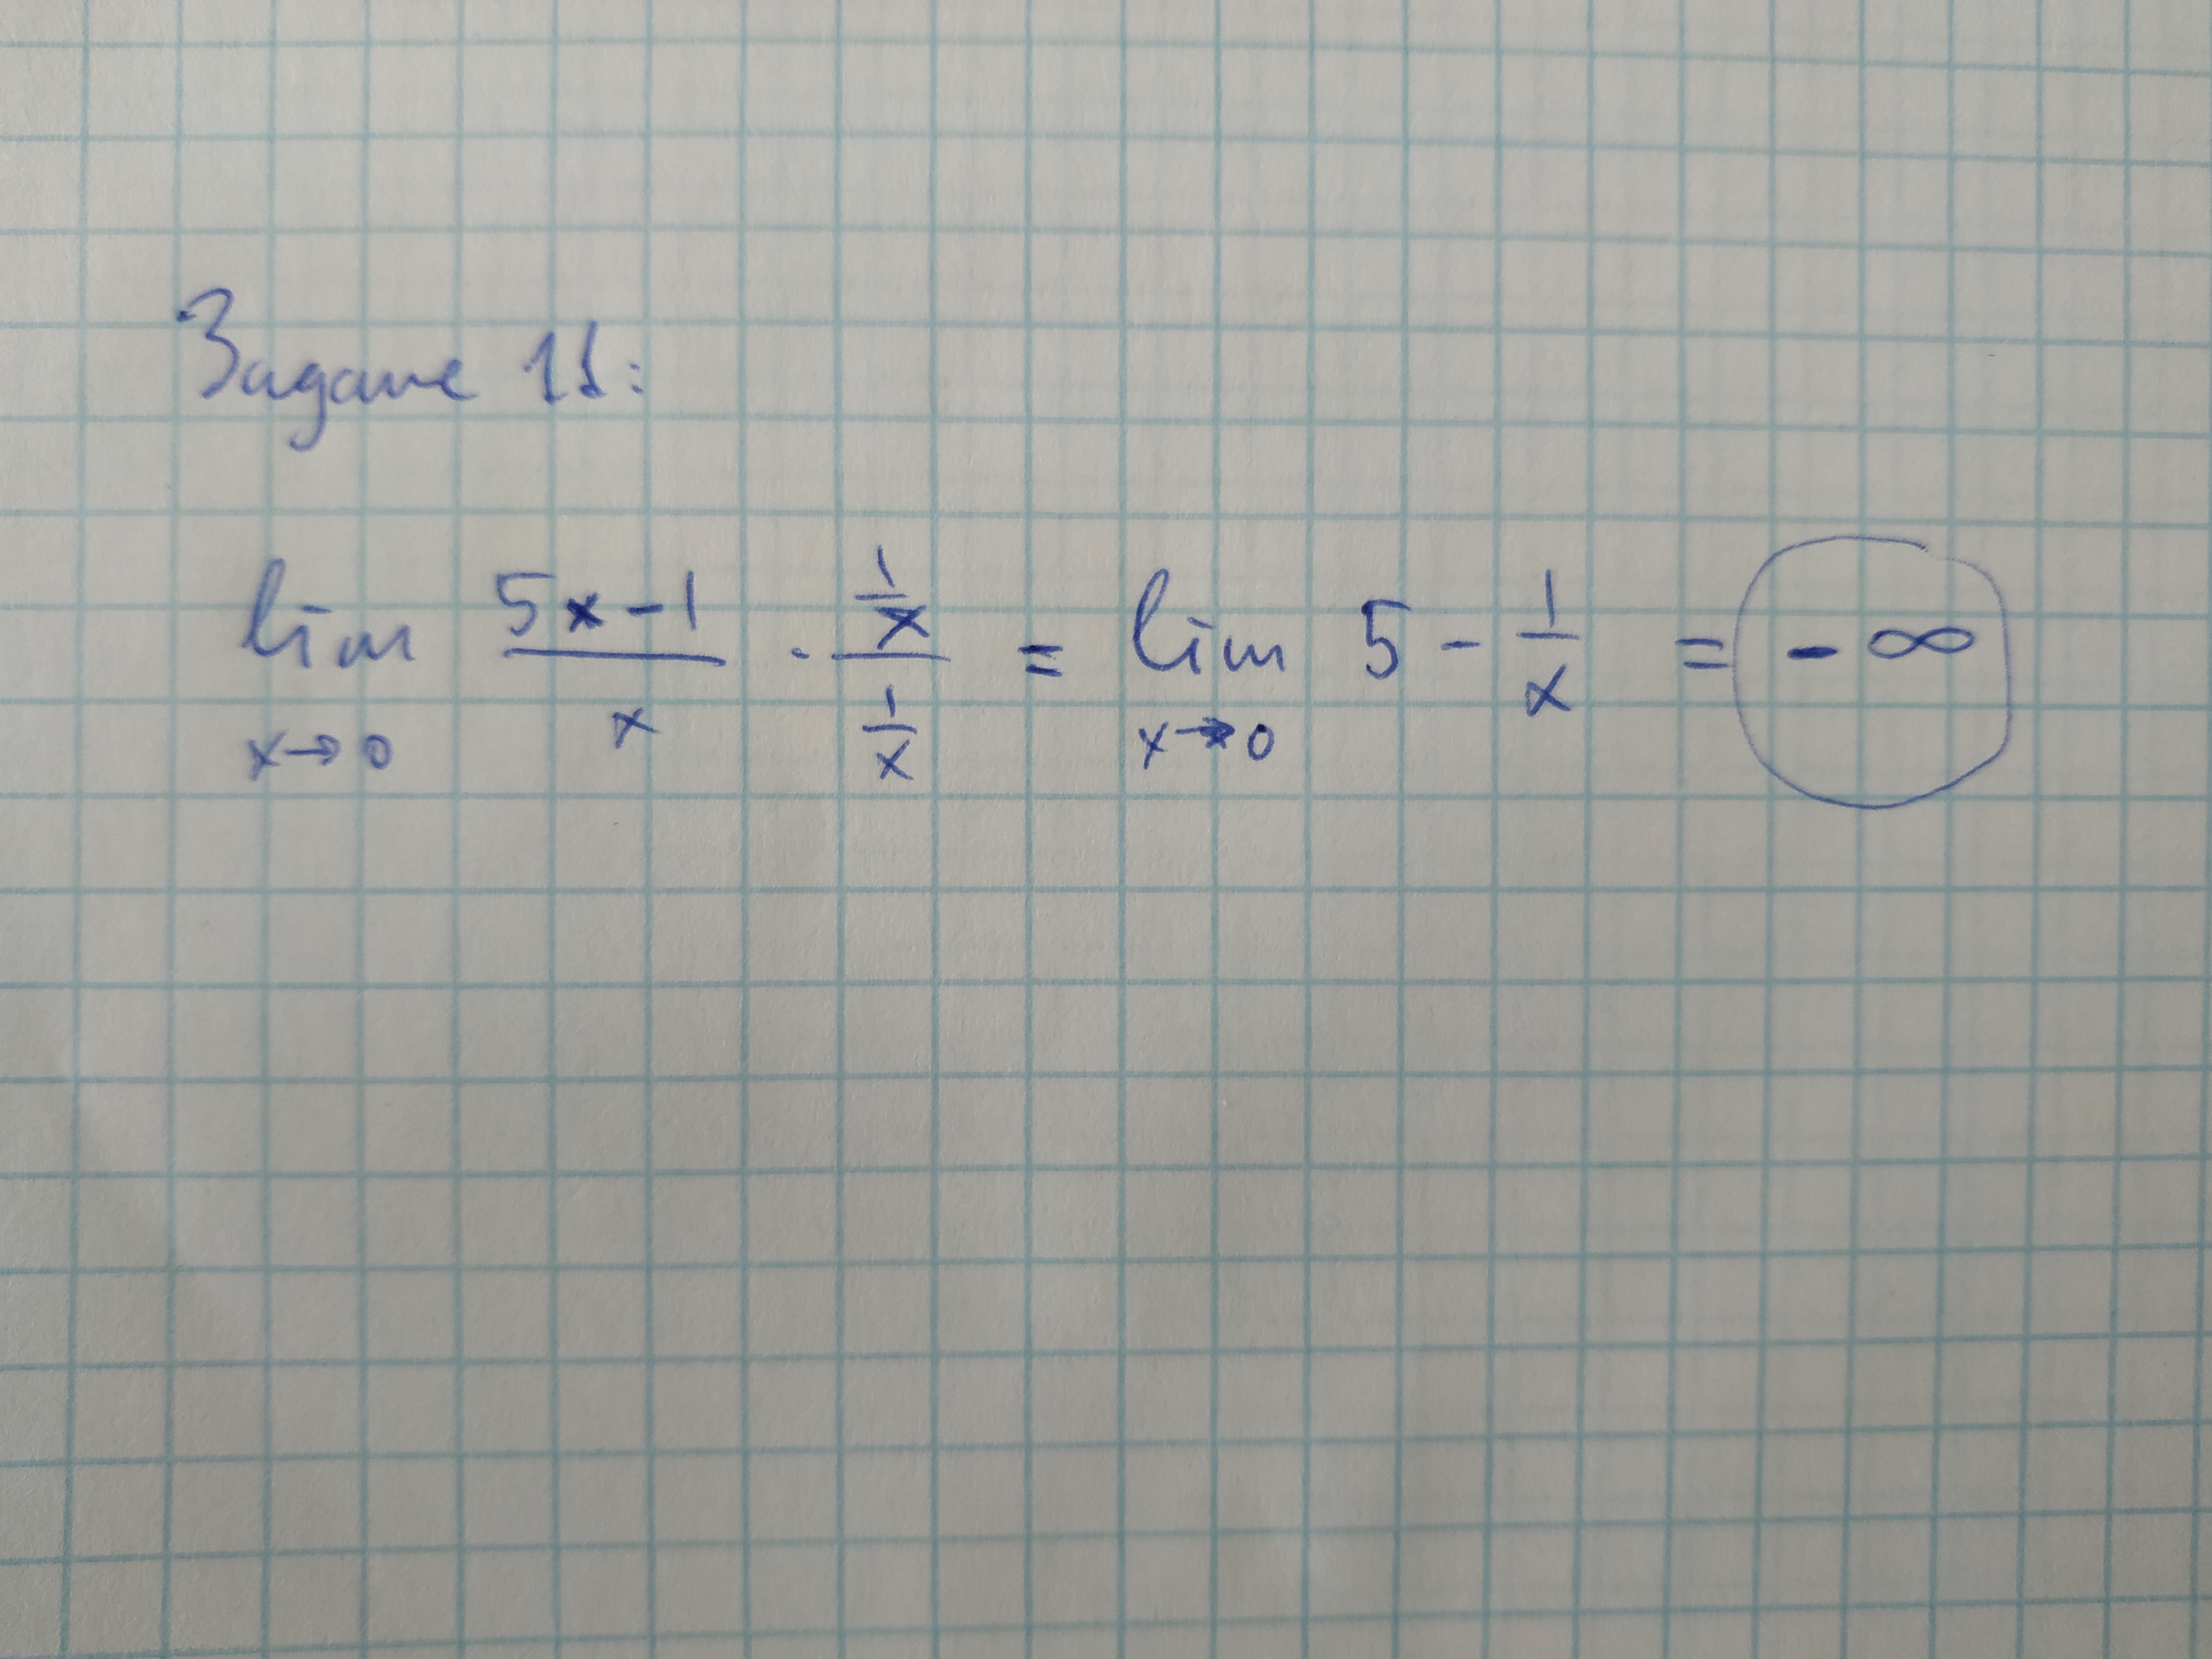 Задание 11:
lim x→0 (5x-1)/x · (1/x)/(1/x) = lim x→0 5 - 1/x = -∞